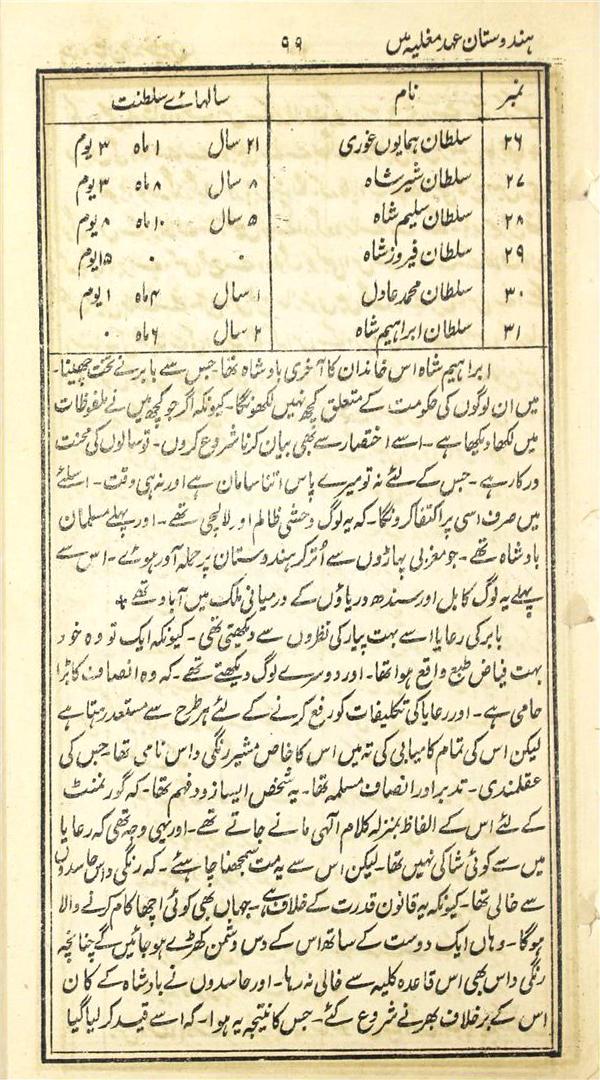 ہندوستان عہد مغلیہ میں ۹۹
نمبر نام سالہائے سلطنت
۲۶ سلطان ہمایوں غوری ۲۱ سال ۱ ماہ ۳ یوم
۲۷ سلطان شیر شاہ ۸ سال ۸ ماہ ۳ یوم
۲۸ سلطان سلیم شاہ ۵ سال ۱۰ ماہ ۸ یوم
۲۹ سلطان فیروز شاہ ۰ ۰ ۱۵ یوم
۳۰ سلطان محمد عادل ۱ سال ۴ ماہ ۱ یوم
۳۱ سلطان ابراہیم شاہ ۲ سال ۶ ماہ ۰
ابراہیم شاہ اس خاندان کا آخری بادشاہ تھا۔ جس سے بابر نے تخت چھینا۔
میں ان لوگوں کی حکومت کے متعلق کچھ نہیں لکھونگا۔ کیونکہ اگر جو کچھ میں نے ملفوظات
میں لکھا دیکھا ہے۔ اسے اختصار سے بھی بیان کرنا شروع کروں۔ تو سالوں کی محنت
درکار ہے۔ جس کے لئے نہ تو میرے پاس اتنا سامان ہے اور نہ ہی وقت۔ اسلئے
میں صرف اسی پر اکتفا کرونگا۔ کہ یہ لوگ وحشی ظالم اور لالچی تھے۔ اور پہلے مسلمان
بادشاہ تھے۔ جو مغربی پہاڑوں سے اُتر کر ہندوستان پر حملہ آور ہوئے۔ اس سے
پہلے یہ لوگ کابل اور سندھ دریاؤں کے درمیانی ملک میں آباد تھے +
بابر کی رعایا اسے بہت پیار کی نظروں سے دیکھتی تھی۔ کیونکہ ایک تو وہ خود
بہت فیاض طبع واقع ہوا تھا۔ اور دوسرے لوگ دیکھتے تھے۔ کہ وہ انصاف کا بڑا
حامی ہے۔ اور رعایا کی تکلیفات کو رفع کرنے کے لئے ہر طرح سے مستعد رہتا ہے
لیکن اس کی تمام کامیابی کی تہ میں اس کا خاص مشیر رنگی داس نامی تھا۔ جس کی
عقلمندی۔ تدبر اور انصاف مسلمہ تھا۔ یہ شخص ایسا زود فہم تھا۔ کہ گورنمنٹ
کے لئے اس کے الفاظ بمنزلہ کلام آلٰہی مانے جاتے تھے۔ اور یہی وجہ تھی کہ رعایا
میں سے کوئی شاکی نہیں تھا۔ لیکن اس سے یہ مت سمجھنا چاہئے۔ کہ رنگی داس حاسدوں
سے خالی تھا۔ کیونکہ یہ قانون قدرت کے خلاف ہے۔ جہاں بھی کوئی اچھا کام کرنے والا
ہوگا۔ وہاں ایک دوست کے ساتھ اس کے دس دشمن کھڑے ہو جائیں گے چنانچہ
رنگی داس بھی اس قاعدہ کلیہ سے خالی نہ رہا۔ اور حاسدوں نے بادشاہ کے کان
اس کے برخلاف بھرنے شروع کئے۔ جس کا نتیجہ یہ ہوا۔ کہ اسے قید کر لیا گیا